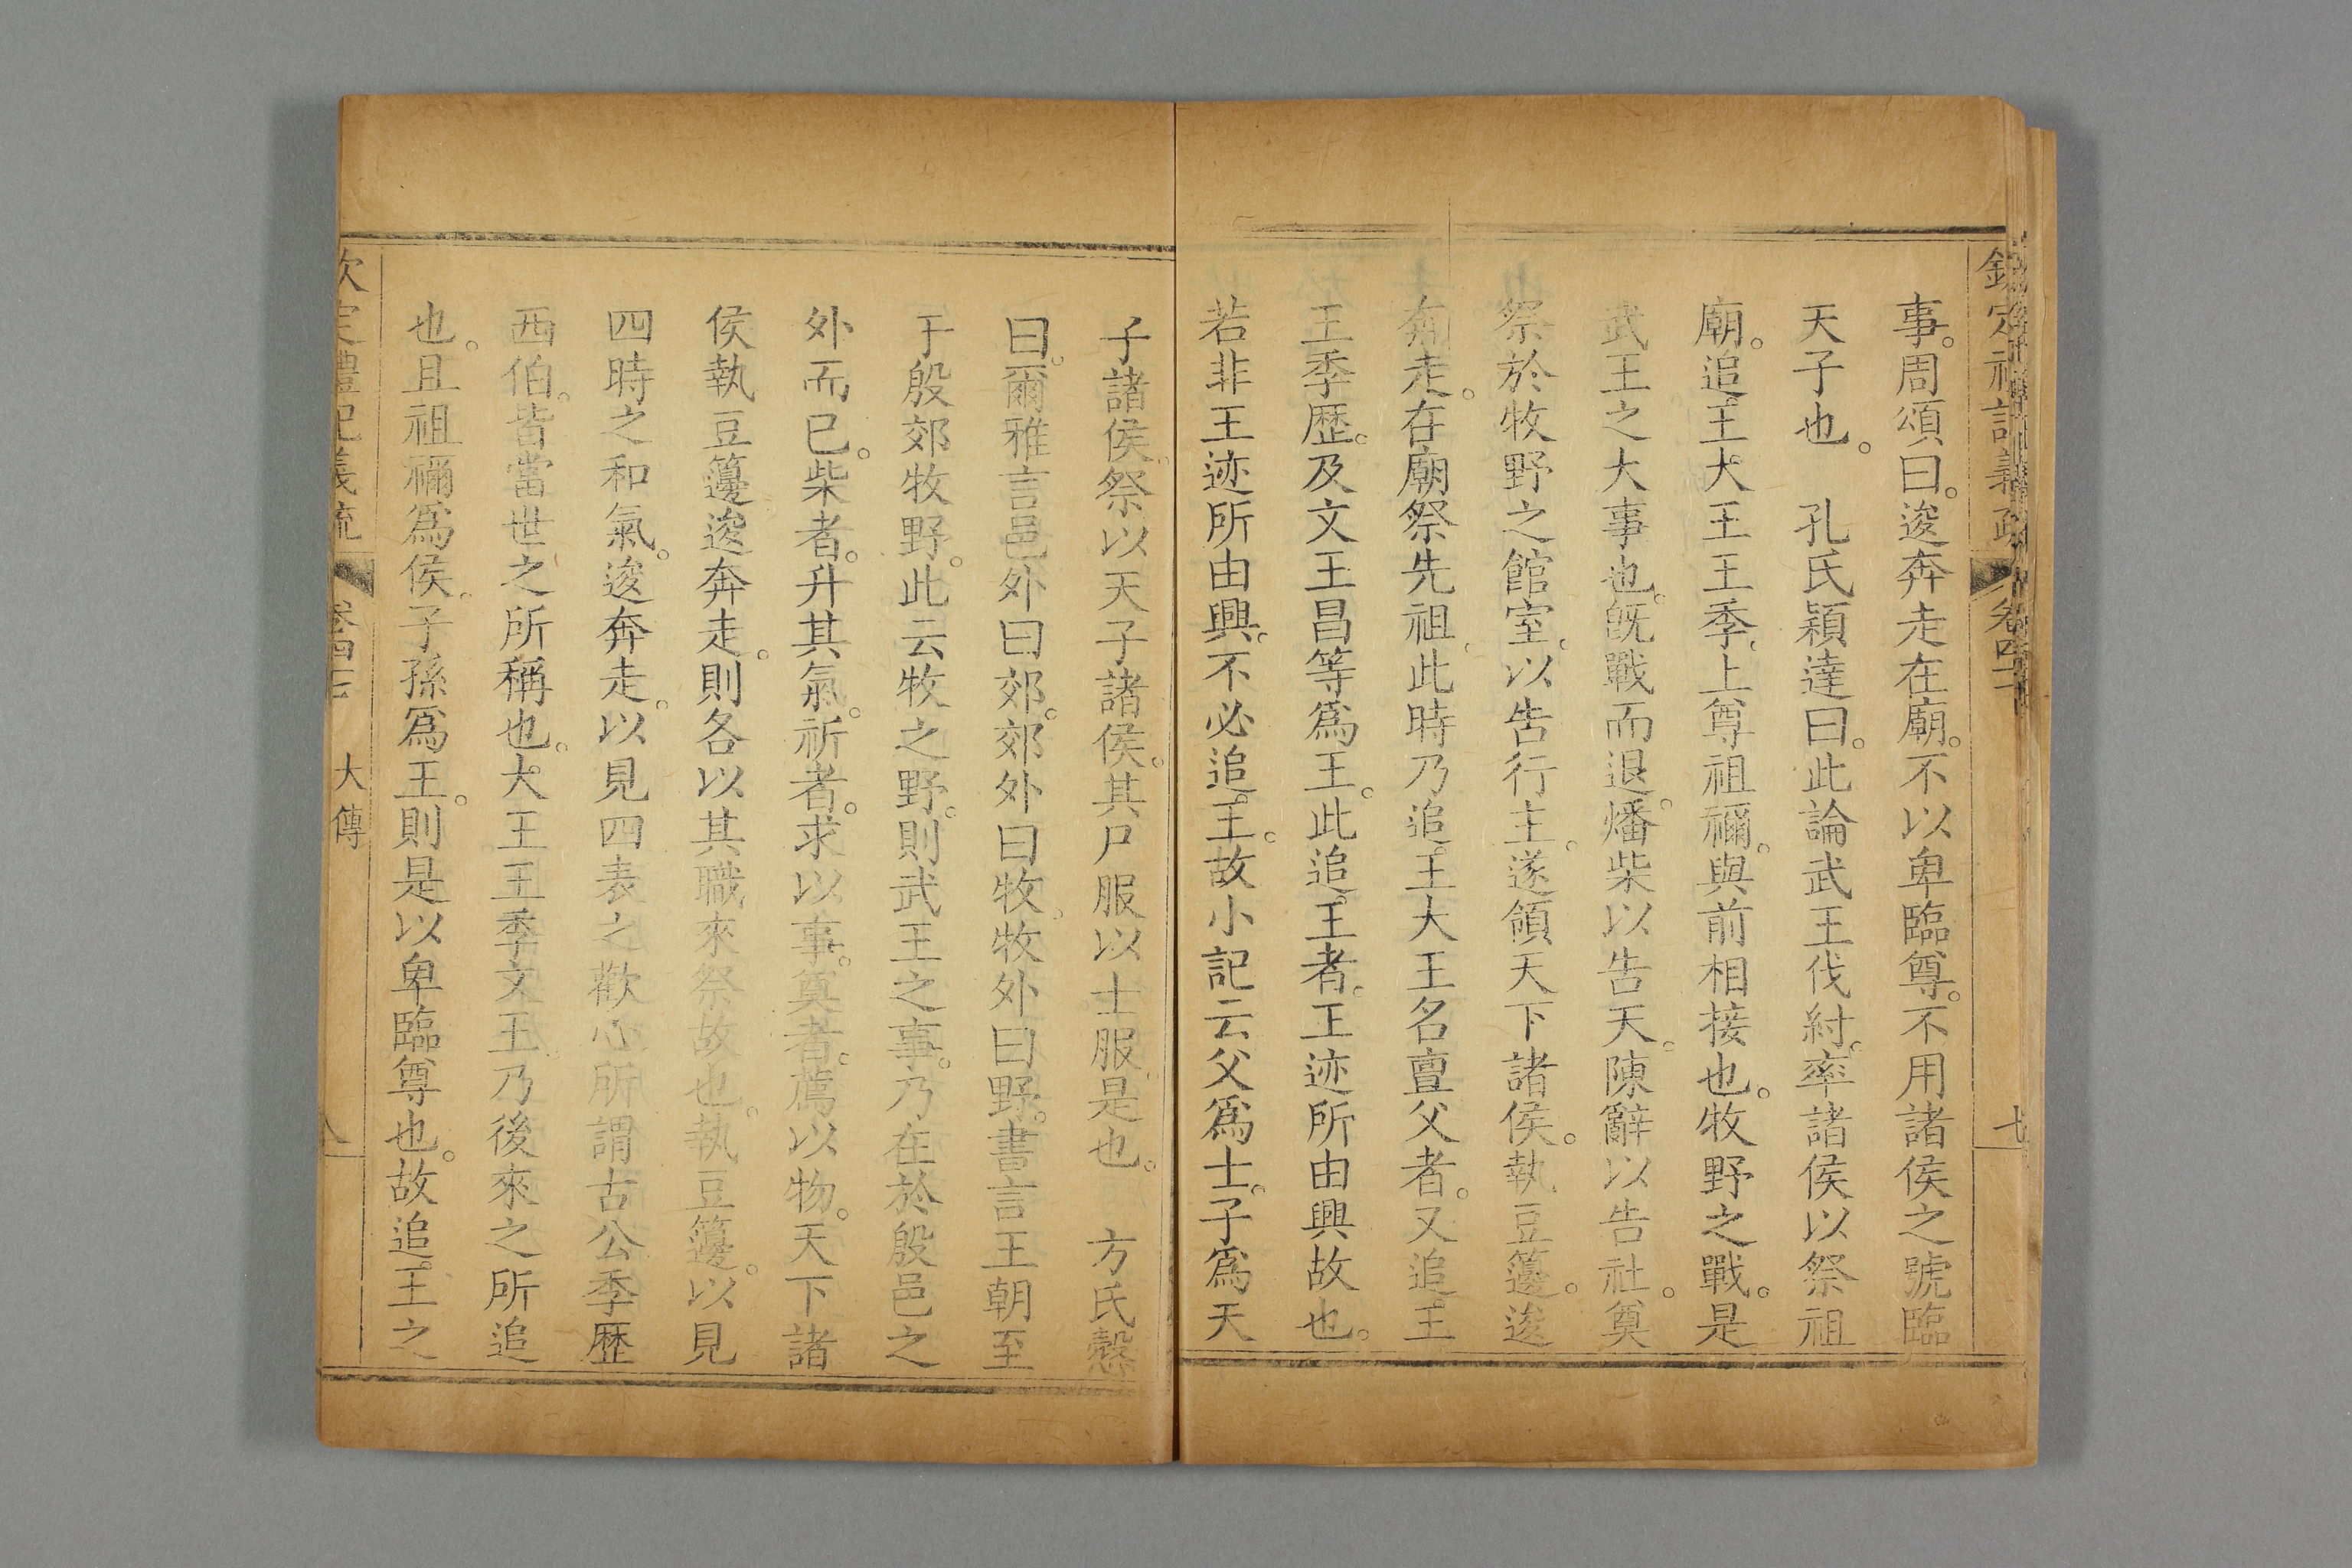 事。周頌曰。逡奔走在廟。不以卑臨尊。不用諸侯之號臨
天子也。　孔氏穎達曰。此論武王伐紂。率諸侯以祭祖
廟。追王大王王季。上尊祖禰。與前相接也。牧野之戰。是
武王之大事也。旣戰而退。燔柴以告天。陳辭以告社。奠
祭於牧野之館室。以告行主。遂領天下諸侯。執豆籩。逡
奔走。在廟祭先祖。此時乃追王大王名亶父者。又追王
王季歷。及文王昌等爲王。此追王者。王迹所由興故也。
若非王迹所由興。不必追王。故小記云父爲士。子爲天
子諸侯。祭以天子諸侯。其尸服以士服是也。　方氏慤
曰。爾雅言邑外曰郊。郊外曰牧。牧外曰野。書言王朝至
于殷郊牧野。此云牧之野。則武王之事。乃在於殷邑之
外而已。柴者。升其氣。祈者。求以事。奠者。薦以物。天下諸
侯執豆籩逡奔走。則各以其職來祭故也。執豆籩。以見
四時之和氣。逡奔走。以見四表之歡心所謂古公季歷
西伯。皆當世之所稱也。大王王季文王乃後來之所追
也。且祖禰爲侯。子孫爲王。則是以卑臨尊也。故追王之
欽定禮記義疏
大傳